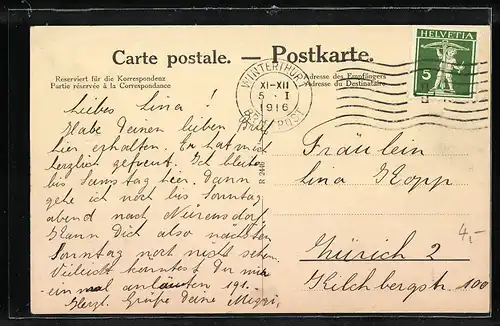 Carte postale. — Postkarte.
Reserviert für die Korrespondenz
Partie réservée à la Correspondance
Adresse des Empfängers
Adresse du Destinataire
HELVETIA
5
WINTERTHUR
XI-XII
5. I
1916
BRIEFPOST
R 2446
Liebes Lina!
Habe Deinen lieben Brief
hier erhalten. Er hat mich
herzlich gefreut. Ich bleibe
bis Samstag hier. Dann
gehe ich noch bis Sonntag
abend nach Nürensdorf.
Kann Dich also nächsten
Sonntag noch nicht sehen.
Vielleicht kanntest Du mir
ein mal anläuten 191.
Herzl. Grüße Deine
Fräulein
Lina Kopp
Zürich 2
Kilchbergstr. 100
4.-